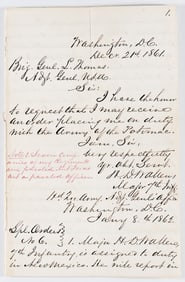 1.
Washington, D.C.
Dec. 21st 1861.
Brig. Genl. L. Thomas
Adjt. Genl. U.S.A.
Sir:
I have the honor
to request that I may receive
an order placing me on duty
with the Army of the Potomac.
I am, Sir,
Very respectfully
Yr. Obt. Servt.
H. D. Wallen,
Major 7th Inf.
Hd. Qrs. Army, Adjt. Genl's Office
Washington, D.C.
Jany 8th 1862.
Spl. Orders
No. 6. } 1. Major H. D. Wallen,
7th Infantry is assigned to duty
in New Mexico. He will report in